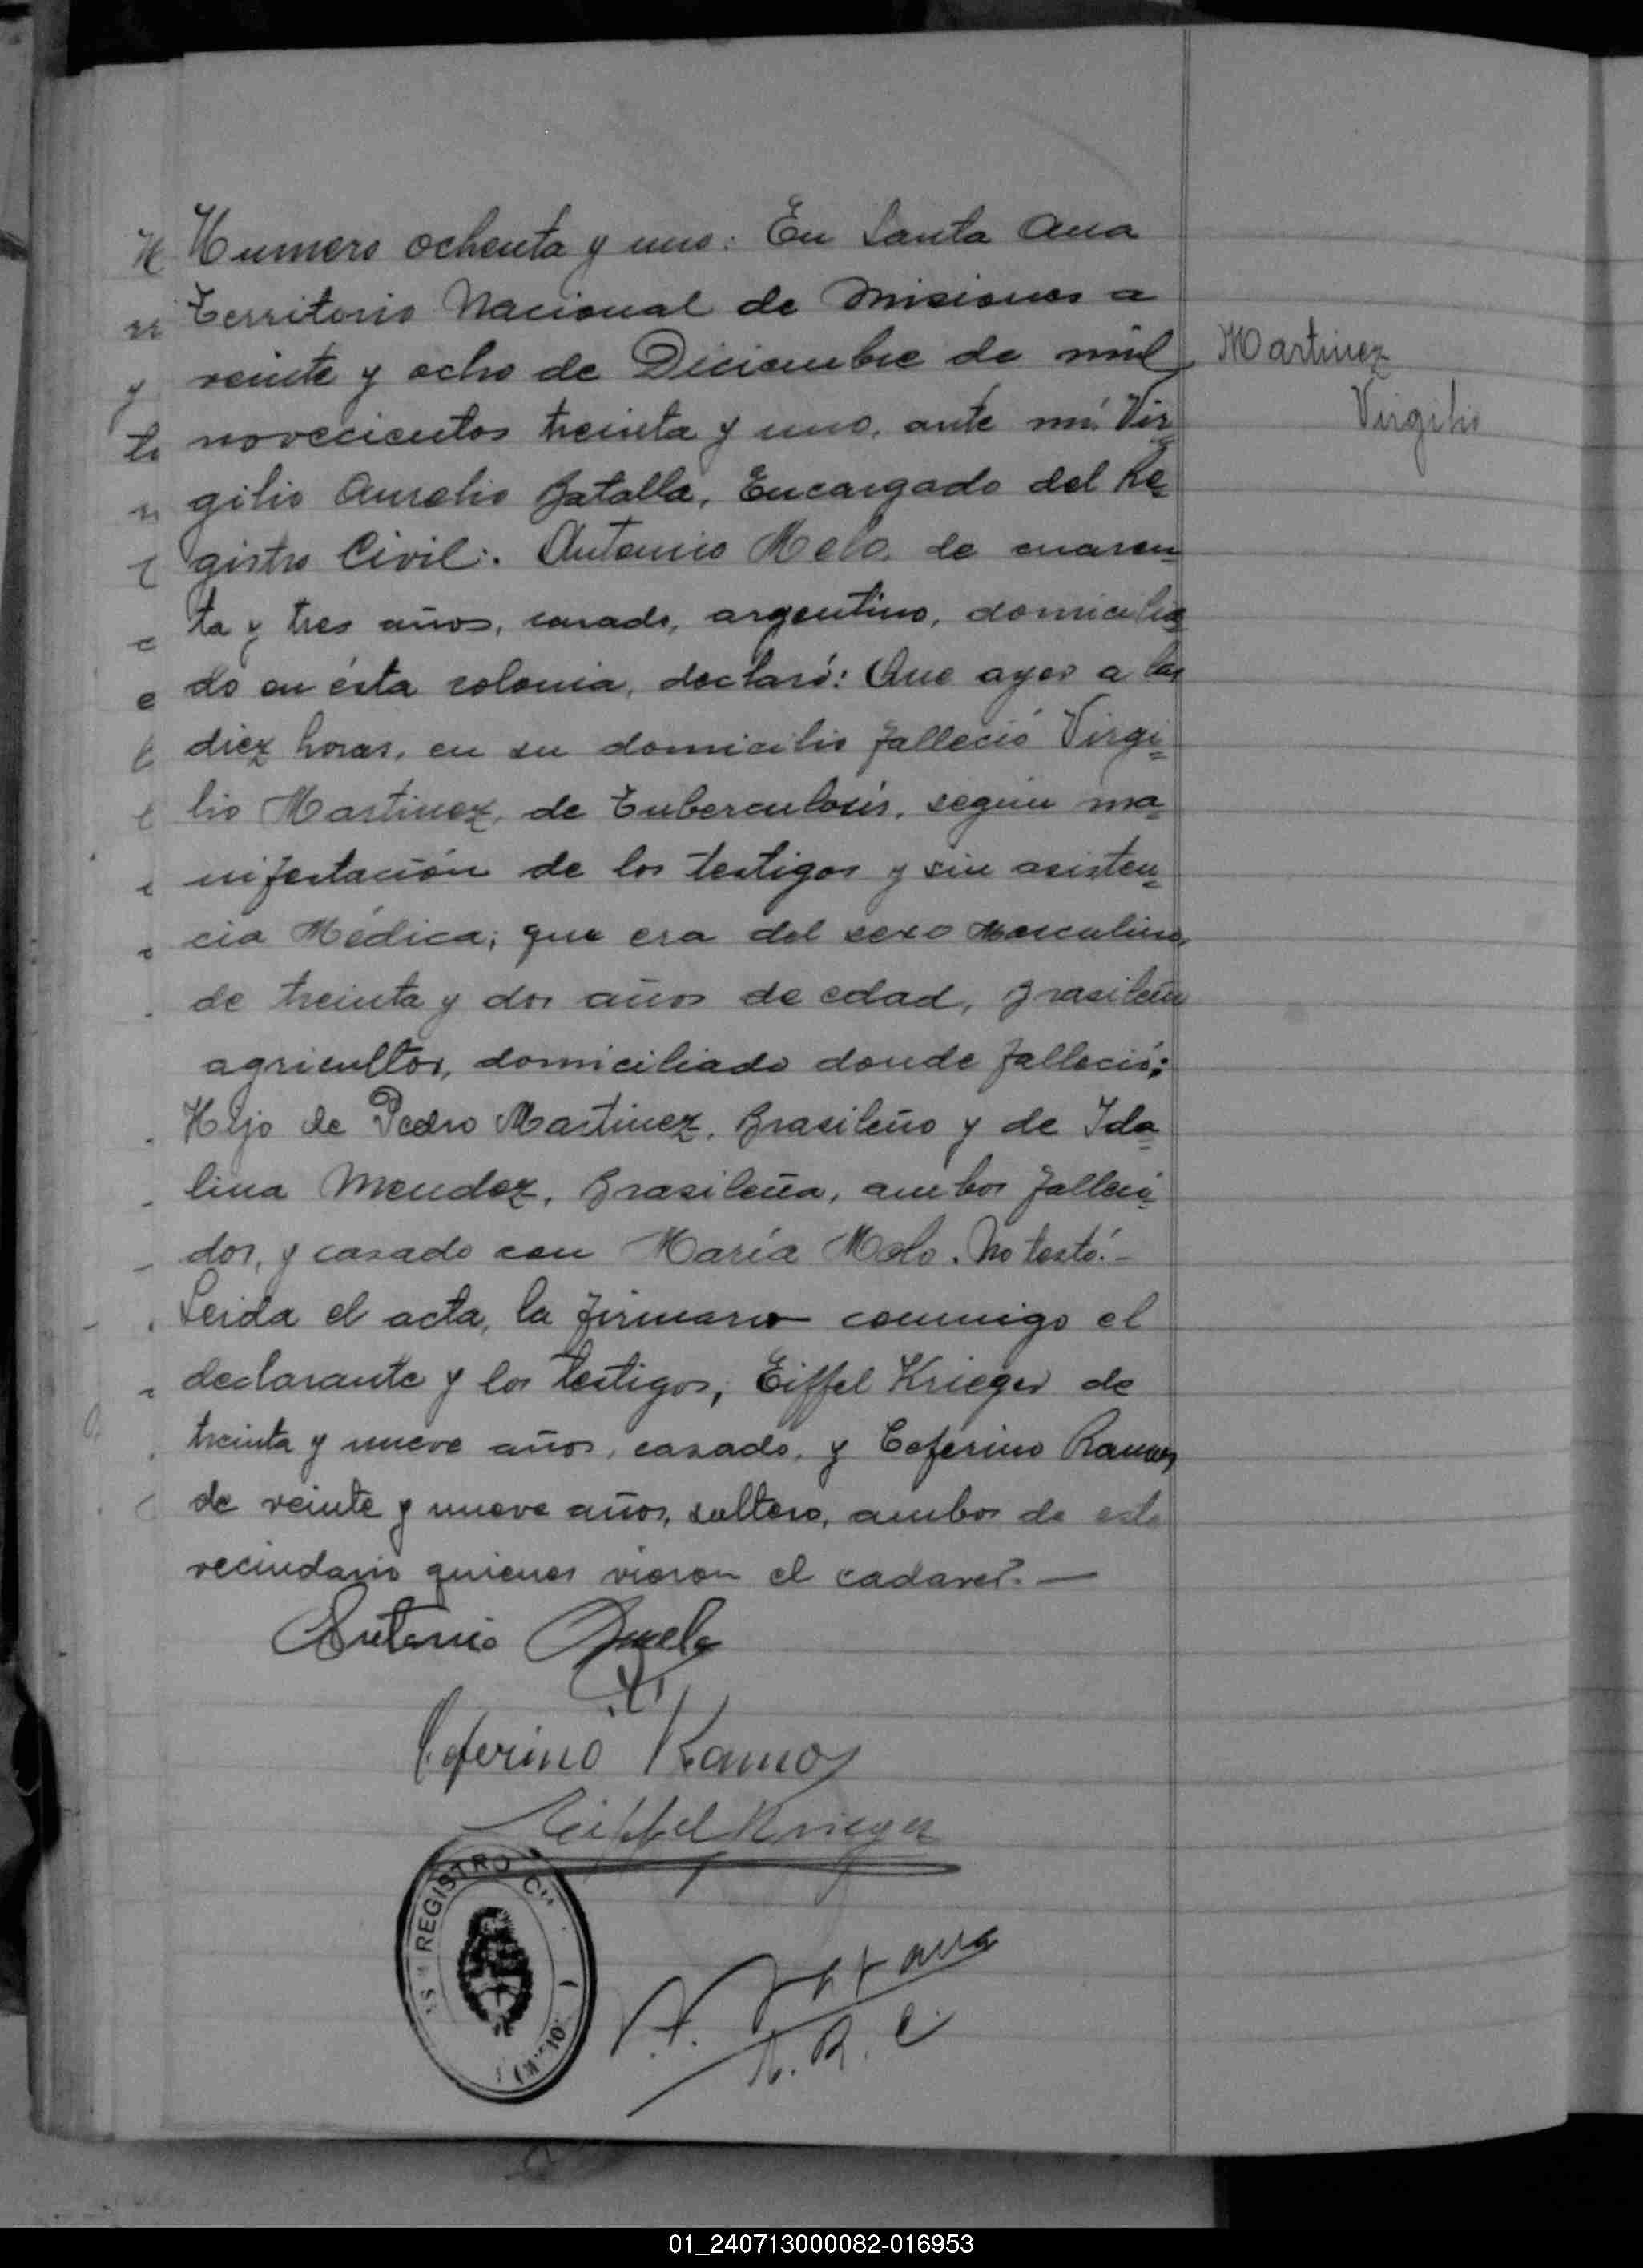 Numero ochenta y uno: En Santa Ana
Territorio Nacional de Misiones a
veinte y ocho de Diciembre de mil
novecientos treinta y uno, ante mí Vir
gilio Aurelio Batalla, Encargado del Re
gistro Civil: Antonio Melo de cuaren
ta y tres años, casado, argentino, domicilia
do en ésta colonia, declaró: Que ayer a las
diez horas, en su domicilio falleció Virgi
lio Martinez, de Tuberculosis, segun ma
nifestación de los testigos y sin asisten
cia Médica; que era del sexo Masculino,
de treinta y dos años de edad, Brasileño
agricultor, domiciliado donde falleció;
Hijo de Pedro Martinez, Brasileño y de Ida
lina Mendez, Brasileña, ambos falleci
dos, y casado con María Melo. No testó.—
Leida el acta, la firmaron conmigo el
declarante y los testigos, Eiffel Krieger de
treinta y nueve años, casado, y Ceferino Ramos
de veinte y nueve años, soltero, ambos de este
vecindario quienes vieron el cadaver.—
Martinez
Virgilio
Antonio Melo
Ceferino Ramos
Eiffel Krieger
REGISTRO
01_240713000082-016953